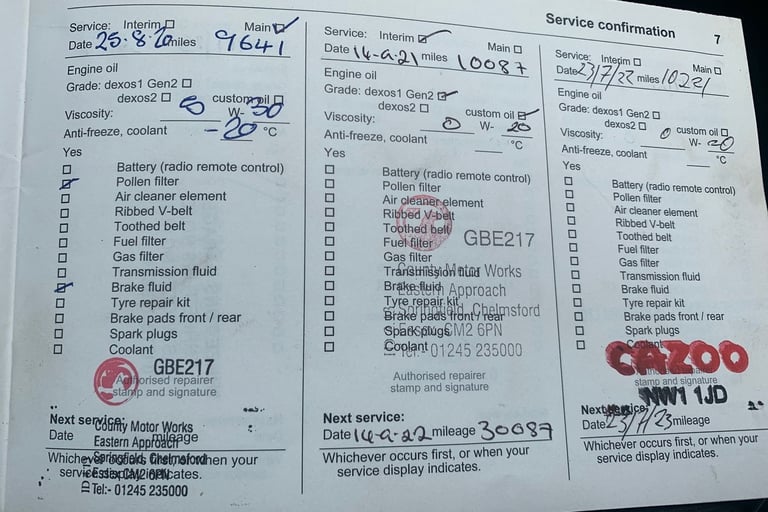 Service confirmation 7
Service: Interim Main
Date 25.8.20 miles 9641
Engine oil
Grade: dexos1 Gen2
dexos2 custom oil
Viscosity: 0 W- 30
Anti-freeze, coolant -20 °C
Yes
Battery (radio remote control)
Pollen filter
Air cleaner element
Ribbed V-belt
Toothed belt
Fuel filter
Gas filter
Transmission fluid
Brake fluid
Tyre repair kit
Brake pads front / rear
Spark plugs
Coolant
GBE217
Authorised repairer
stamp and signature
Next service:
County Motor Works
Date mileage
Eastern Approach
Whichever occurs first, or when your
Springfield, Chelmsford
service display indicates.
Essex CM2 6PN
Tel:- 01245 235000
Service: Interim Main
Date 14-9-21 miles 10087
Engine oil
Grade: dexos1 Gen2
dexos2 custom oil
Viscosity: 0 W- 20
Anti-freeze, coolant °C
Yes
Battery (radio remote control)
Pollen filter
Air cleaner element
Ribbed V-belt
Toothed belt
GBE217
Fuel filter
Gas filter
Transmission fluid
County Motor Works
Brake fluid
Eastern Approach
Tyre repair kit
Springfield, Chelmsford
Brake pads front / rear
Spark plugs
Essex CM2 6PN
Coolant
Tel:- 01245 235000
Authorised repairer
stamp and signature
Next service:
Date 14-9-22 mileage 30087
Whichever occurs first, or when your
service display indicates.
Service: Interim Main
Date 23/7/22 miles 10221
Engine oil
Grade: dexos1 Gen2
dexos2 custom oil
Viscosity: 0 W- 20
Anti-freeze, coolant °C
Yes
Battery (radio remote control)
Pollen filter
Air cleaner element
Ribbed V-belt
Toothed belt
Fuel filter
Gas filter
Transmission fluid
Brake fluid
Tyre repair kit
Brake pads front / rear
Spark plugs
Coolant
CAZOO
stamp and signature
NW1 1JD
Next service:
Date 23/7/23 mileage
Whichever occurs first, or when your
service display indicates.